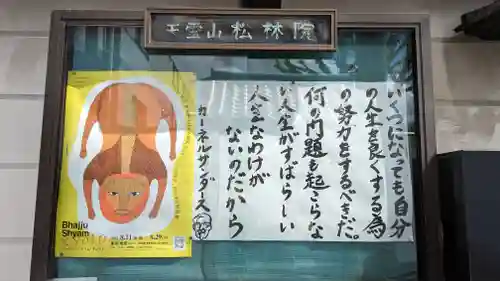 玉雲山松林院
いくつになっても自分
の人生を良くする為
の努力をするべきだ。
何の問題も起こらな
い人生がすばらしい
人生なわけが
ないのだから
カーネルサンダース
Bhajju
Shyam